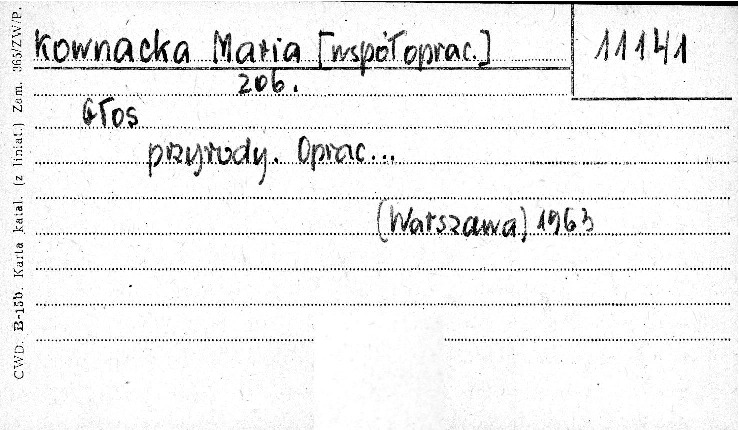 Kownacka Maria [współoprac.]
11141
zob.
Głos
przyrody. Oprac...
(Warszawa) 1963
CWD. B-15b. Karta katal. (z liniat.) Zam. 365/ZW/P.